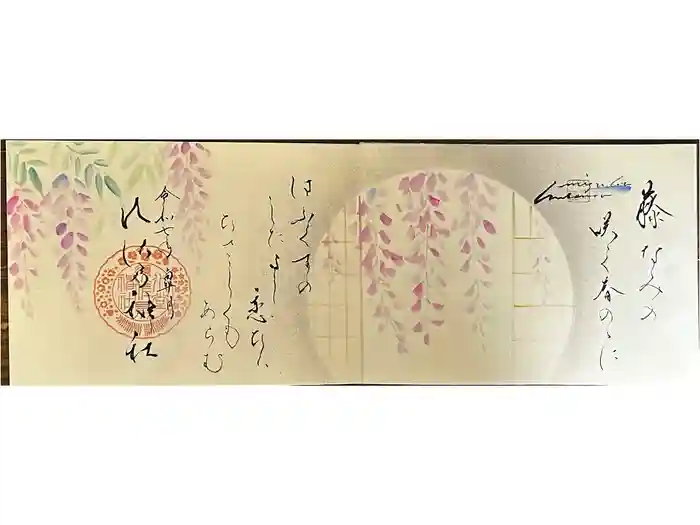 藤なみの
咲く春のゝに
はふくずの
したよし
恋ひば
ひさしくも
あらむ
令和七年
神社